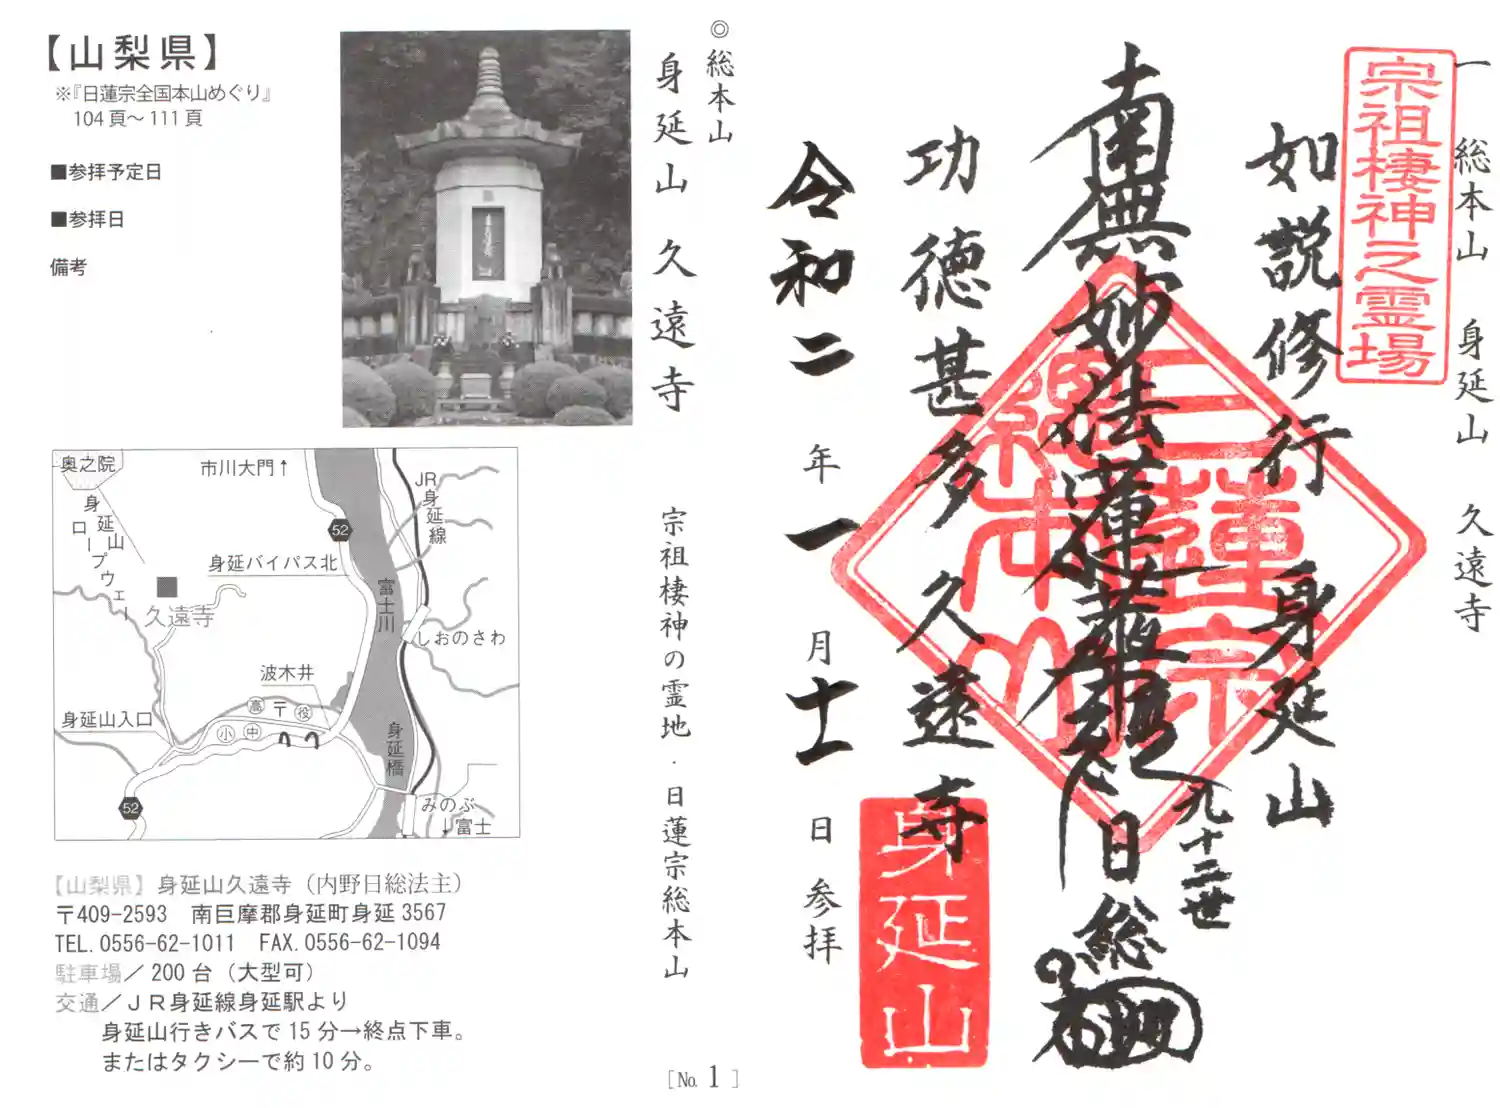 【山梨県】
※『日蓮宗全国本山めぐり』
104頁〜111頁
■参拝予定日
■参拝日
備考
◎総本山
身延山 久遠寺
宗祖棲神の霊地・日蓮宗総本山
奥之院
市川大門↑
JR身延線
身延山ロープウェー
52
身延バイパス北
久遠寺
富士川
しおのさわ
波木井
高
〒
役
身延山入口
小
中
身延橋
52
みのぶ
↓富士
【山梨県】身延山久遠寺（内野日総法主）
〒409-2593 南巨摩郡身延町身延3567
TEL.0556-62-1011 FAX.0556-62-1094
駐車場／200台（大型可）
交通／ＪＲ身延線身延駅より
身延山行きバスで15分→終点下車。
またはタクシーで約10分。
[№ 1 ]
一 総本山 身延山 久遠寺
宗祖棲神之霊場
如説修行 身延山
南無妙法蓮華経
九十二世
日総
功徳甚多 久遠寺
令和二年一月十一日参拝
日蓮宗
総本山
身延山